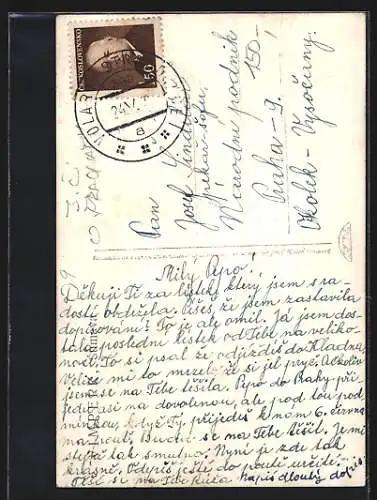 ČESKOSLOVENSKO
1.50
VOLARY
24.V.
a
Pan
Josef
Národní podnik
150,-
Praha-9.
Okolek-Vysočany.
Milý Pepo!
Děkuji Ti za lístek který jsem s ra-
dostí obdržela. Píšeš, že jsem zastavila
dopisování? To je ale omyl. Já jsem dos-
tala poslední lístek od Tebe na veliko-
noce. To si psal že odjíždíš do Kladna
velice mi to mrzelo že si jel pryč. Ačkoliv
jsem se na Tebe těšila. Pepo do Prahy při-
jedu asi na dovolenou, ale pod tou pod-
mínkou, když Ty přijedeš k nám 6. června
na pouť. Budu se na Tebe těšit. Je mi
stejně tak smutno. Nyní je zde tak
krásně. Odepiš ještě do pouti určitě.
Těší se na Tebe Růža Napiš dlouhý dopis.